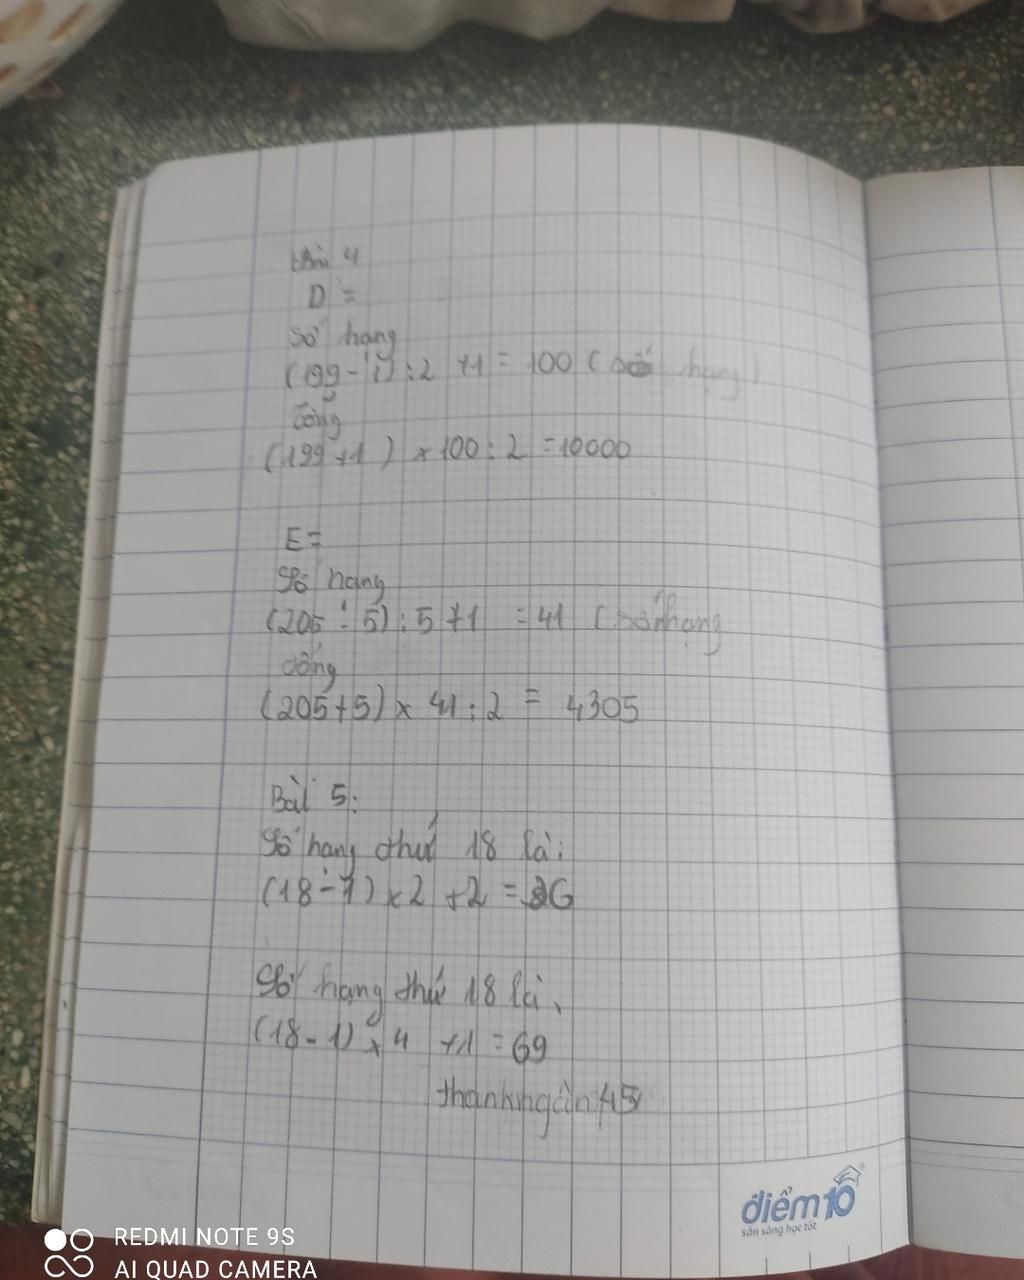 bài 4
D =
Số hạng
(199 - 1) : 2 + 1 = 100 ( số hạng )
tổng
(199 + 1 ) x 100 : 2 = 10000
E =
Số hạng
(205 - 5) : 5 + 1 = 41 ( số hạng
tổng
(205 + 5) x 41 : 2 = 4305
Bài 5:
Số hạng thứ 18 là:
(18 - 1) x 2 + 2 = 36
Số hạng thứ 18 là
(18 - 1) x 4 + 1 = 69
điểm10
sẵn sàng học tốt
REDMI NOTE 9S
AI QUAD CAMERA